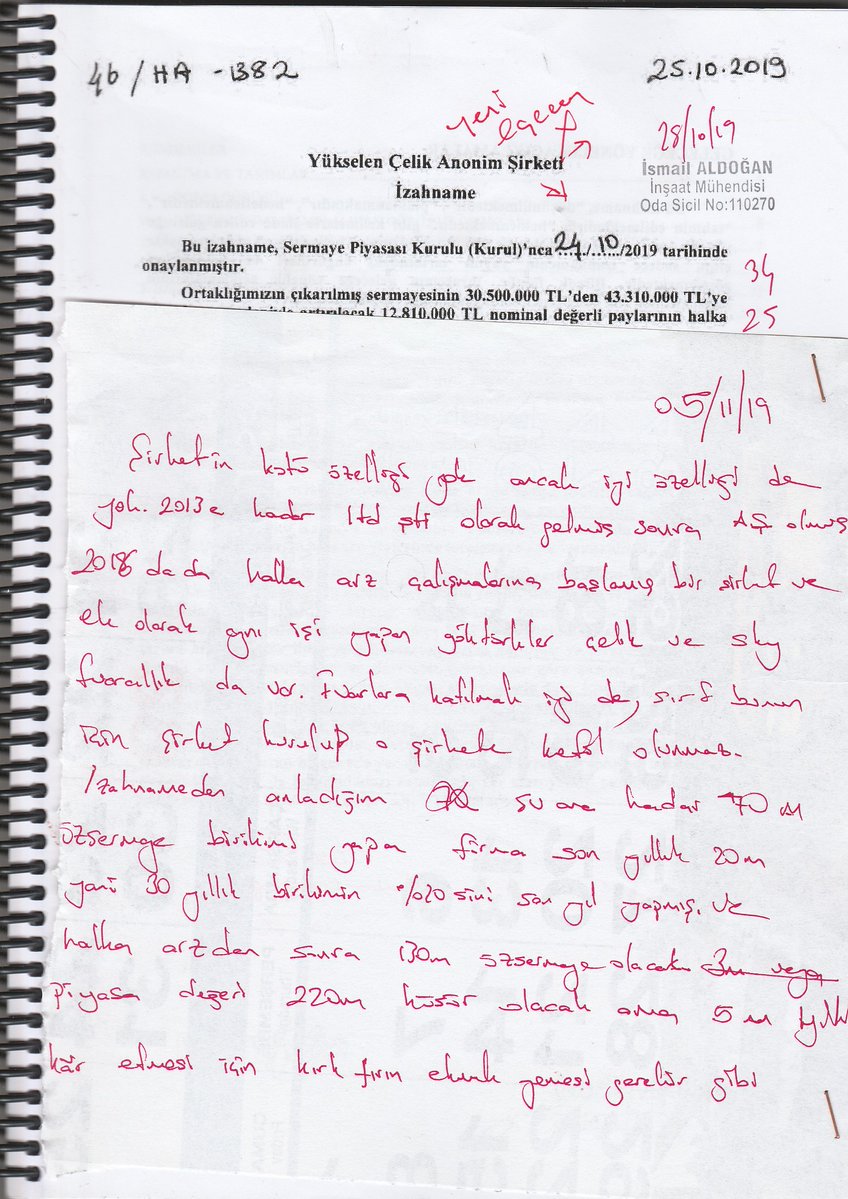 46/HA -1382
25.10.2019
yeni
28/10/19
Yükselen Çelik Anonim Şirketi
İzahname
İsmail ALDOĞAN
İnşaat Mühendisi
Oda Sicil No:110270
Bu izahname, Sermaye Piyasası Kurulu (Kurul)'nca 24/10/2019 tarihinde
onaylanmıştır.
34
Ortaklığımızın çıkarılmış sermayesinin 30.500.000 TL'den 43.310.000 TL'ye
artırılacak 12.810.000 TL nominal değerli paylarının halka
25
05/11/19
Şirketin kötü özelliği yok ancak iyi özelliği de
yok. 2013 e kadar ltd şti olarak gelmiş sonra AŞ olmuş
2018 da da halka arz çalışmalarına başlamış bir şirket ve
ek olarak aynı işi yapan göktürkler çelik ve sky
fuarcılık da var. Fuarlara katılmak iyi de, sırf bunun
için şirket kurulup o şirkete kefil olunmaz.
İzahnameden anladığım şu ana kadar 70 m
özsermaye birikimi yapan firma son yıllık 20m
yani 30 yıllık birikimin %20 sini son yıl yapmış. ve
halka arzdan sonra 130m özsermaye olacak
piyasa değeri 220m küsür olacak ama 5 m
kâr etmesi için kırk fırın ekmek yemesi gerekir gibi